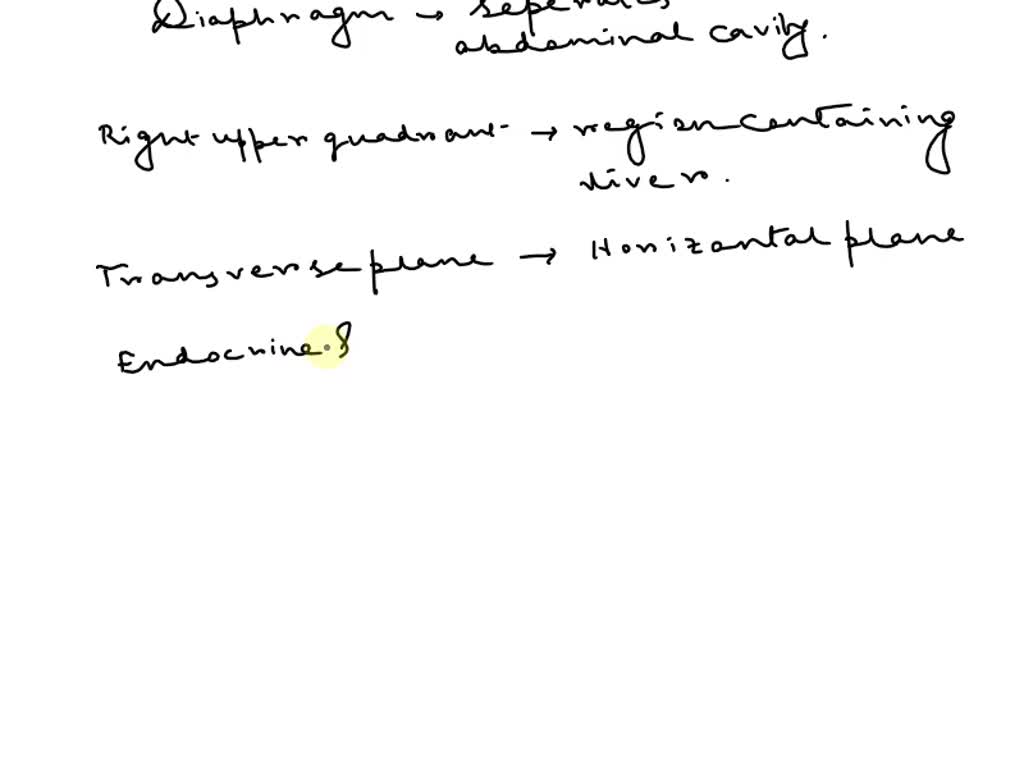 Diaphragm → seperates
abdominal cavity.
Right upper quadrant → region containing
liver.
Transverse plane → Horizontal plane
Endocrine